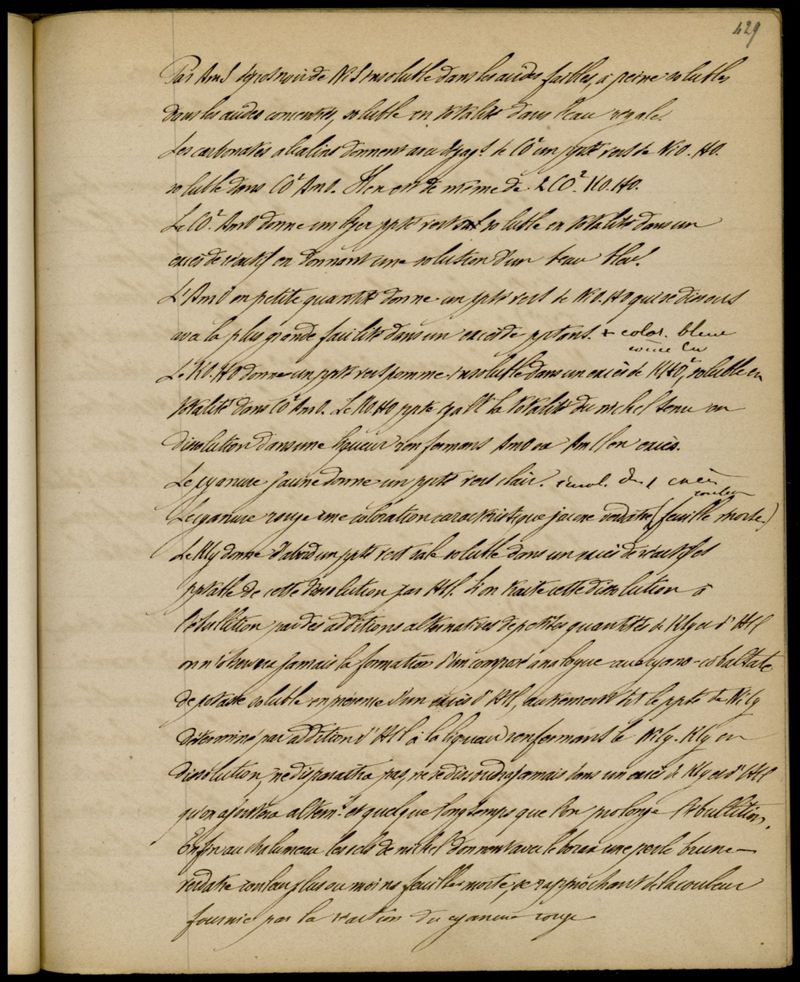 429
Par AmS dépot noir de NiS insoluble dans les acides faibles, à peine soluble
dans les acides concentrés, soluble en totalité dans l'eau régale.
Les carbonates alcalins donnent avec dégagt. de CO² un ppté vert de NiO. HO.
soluble dans CO² AmO. Il en est de même de 2CO². KO. HO.
Le CO². AmO donne un léger ppté vert soluble en totalité dans un
excès de réactif en donnant une solution d'un beau bleu.
L'AmO en petite quantité donne un ppté vert de NiO. HO qui se dissous
avec la plus grande facilité dans un excès de pptant. + color. bleue
Le KO. HO donne un ppté vert pomme insoluble dans un excès de KHO², soluble en
totalité dans CO² AmO. Le KO. HO ppte la totalité du nickel tenu en
dissolution dans une liqueur renfermant AmO ou AmCl en excès.
Le cyanure jaune donne un ppté vert clair. excès
couleur
Le cyanure rouge une coloration caractéristique jaune verdatre (feuille morte.)
Le KCy donne d'abord un ppté vert sale soluble dans un excès de réactif et
pptable de cette dissolution par HCl. Si on traite cette dissolution à
l'ébullition par des additions alternatives de petites quantités de KCy et d'HCl
on n'observera jamais la formation d'un composé analogue au cyano-cobaltate
de potasse soluble en présence d'un excès d'HCl, autrement dit le ppté de NiCy
déterminé par addition d'HCl à la liqueur renfermant le NiCy. KCy en
dissolution, ne disparaitra pas, ne se dissoudra jamais dans un excès de KCy et d'HCl
qu'on ajoutera alternt. et quelque long temps que l'on prolonge l'ébullition.
Enfin au chalumeau les sels de nickel donnent avec le borax une perle brune-
verdatre couleur plus ou moins feuille morte, se rapprochant de la couleur
fournie par la réaction du cyanure rouge